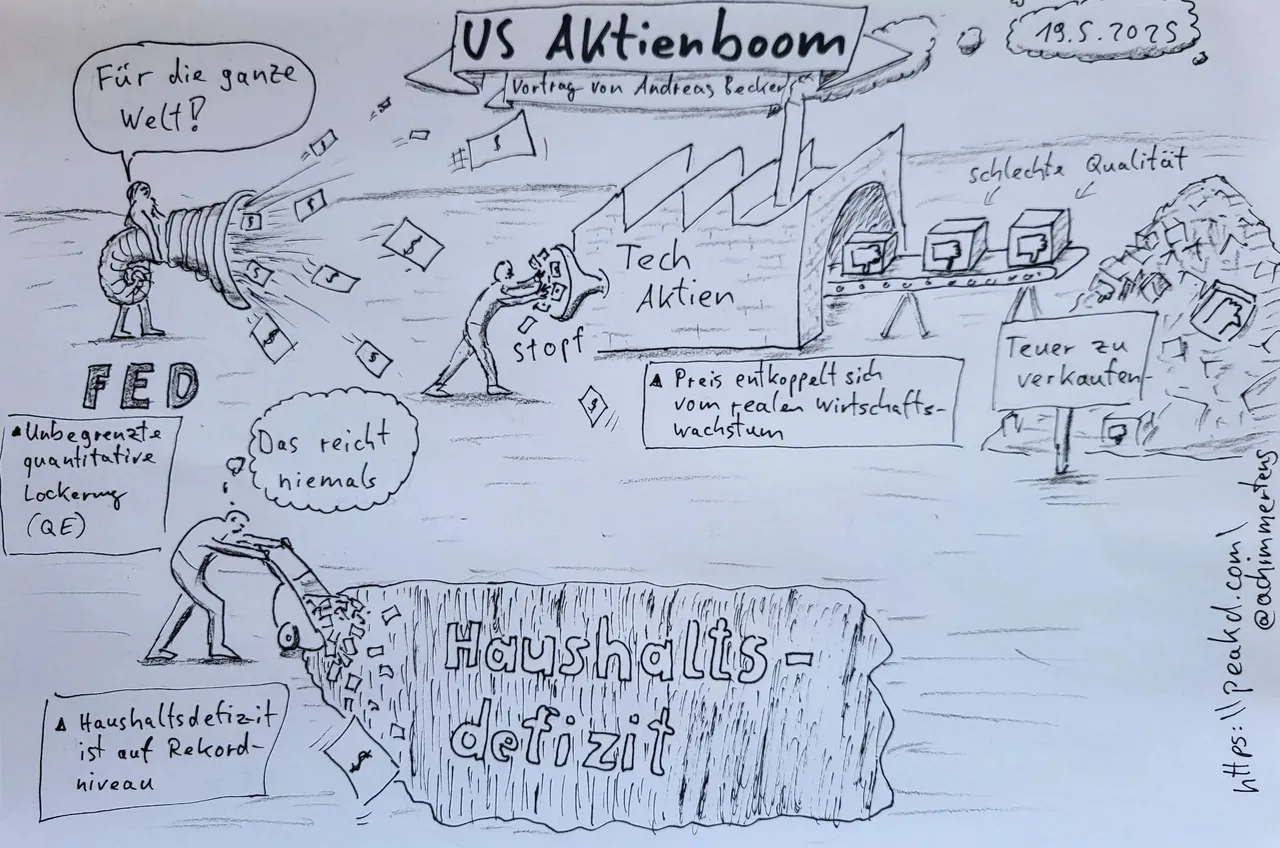 US Aktienboom
Vortrag von Andreas Becker
19.5.2025
Für die ganze
Welt!
FED
Unbegrenzte
quantitative
Lockerung
(QE)
stopf
Tech
Aktien
Preis entkoppelt sich
vom realen Wirtschafts-
wachstum
schlechte Qualität
Teuer zu
verkaufen
Das reicht
niemals
Haushaltsdefizit
ist auf Rekord-
niveau
Haushalts-
defizit
https://peakd.com/
@achimmertens
$
$
$
$
$
$
$
$
$
$
$